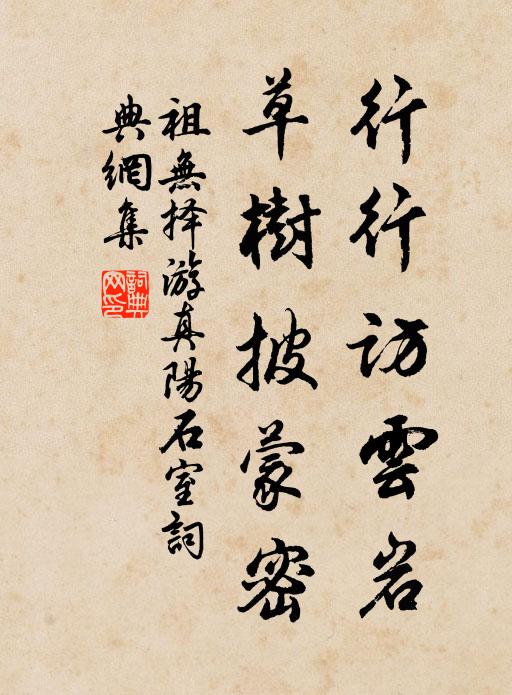 行行訪雲岩
草樹披蒙密
祖無择游真陽石室詞
典網集
詞典
网印